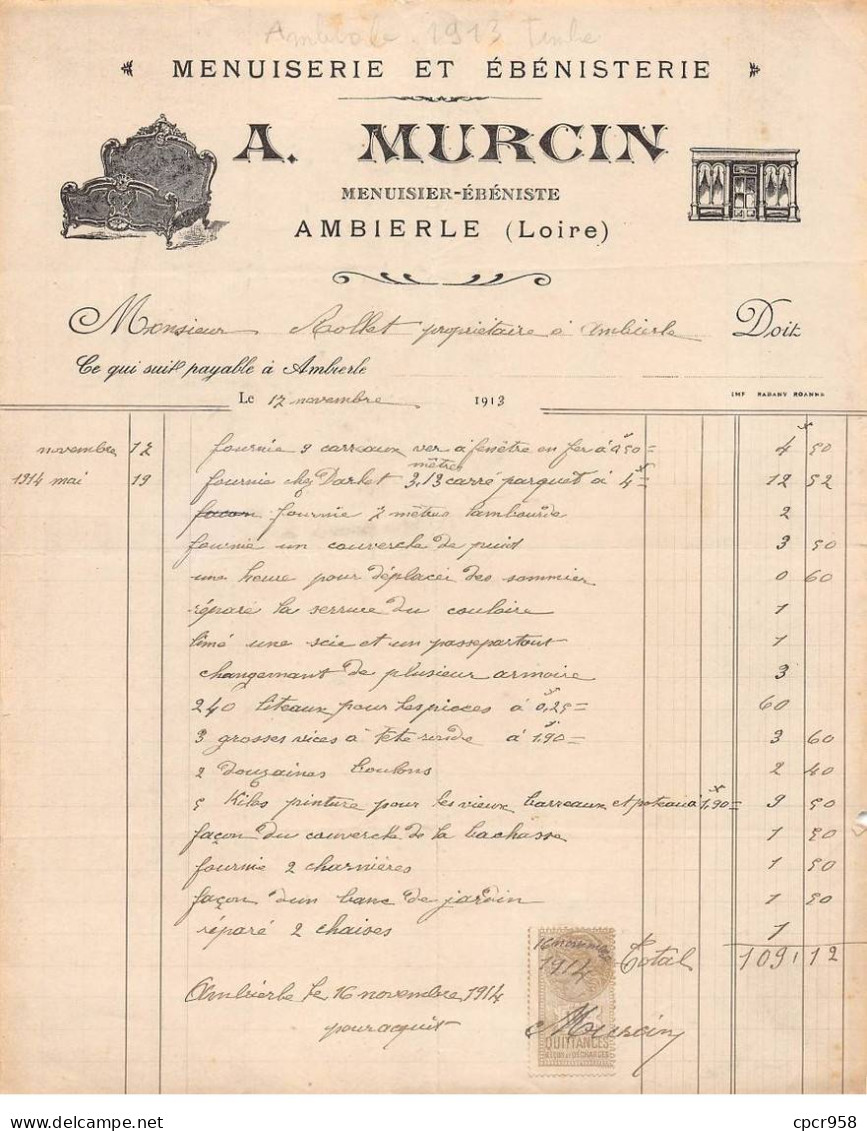 Ambierle 1913 Timbre
MENUISERIE ET ÉBÉNISTERIE
A. MURCIN
MENUISIER-ÉBÉNISTE
AMBIERLE (Loire)
Monsieur Rollet propriétaire à Ambierle Doit
Ce qui suit payable à Ambierle
Le 12 novembre 1913
IMP RABANY ROANNE
novembre 12 fournie 9 carreaux ver a fenêtre en fer à 0,50 = 4 50
1914 mai 19 fournie chez Darlet 3,13 mètres carré parquet à 4 = 12 52
façon fournie 7 mètres lambourde 2
fournie un couvercle de puist 3 50
une heure pour déplacer des sommier 0 60
réparé la serrure du couloire 1
limé une scie et un passepartout 1
changemant de plusieur armoire 3
240 liteaux pour les pieces à 0,25 = 60
3 grosses vices à tete ronde à 1,90 = 3 60
2 douzaines boulons 2 40
5 Kilos pinture pour les vieux barreaux et poteau à 1,90 = 9 50
façon du couvercle de la bachasse 1 50
fournie 2 charnières 1 50
façon dun banc de jardin 1 50
réparé 2 chaises 1
Total 109,12
16 novembre
1914
Ambierle le 16 novembre 1914
pour acquit
Murcin
QUITTANCES
REÇUS ET DÉCHARGES
www.delcampe.net
cpcr958